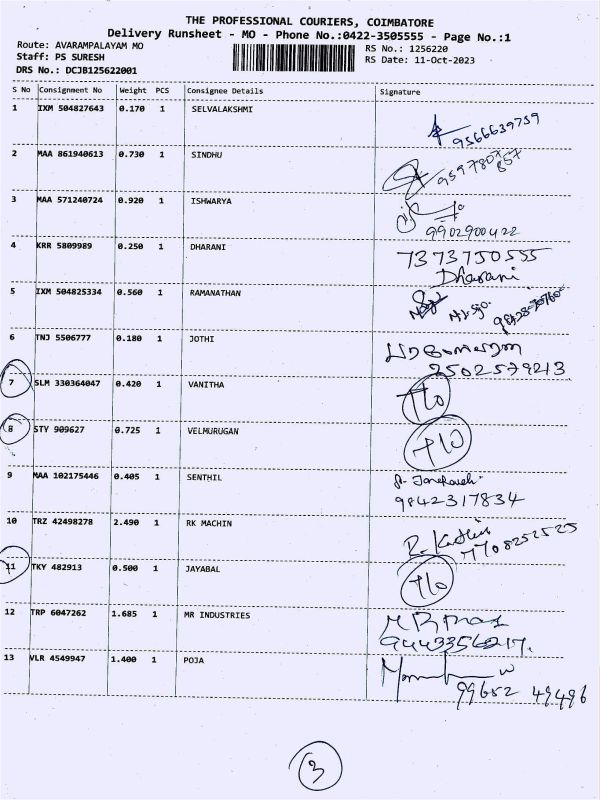 THE PROFESSIONAL COURIERS, COIMBATORE
Delivery Runsheet - MO - Phone No.:0422-3505555 - Page No.:1
Route: AVARAMPALAYAM MO
RS No.: 1256220
Staff: PS SURESH
RS Date: 11-Oct-2023
DRS No.: DCJB125622001
S No Consignment No Weight PCS Consignee Details Signature
1 IXM 504827643 0.170 1 SELVALAKSHMI
9566639759
2 MAA 861940613 0.730 1 SINDHU
3 MAA 571240724 0.920 1 ISHWARYA
9902900422
4 KRR 5809989 0.250 1 DHARANI 7373730555
Dharani
5 IXM 504825334 0.560 1 RAMANATHAN
6 TNJ 5506777 0.180 1 JOTHI
7 SLM 330364047 0.420 1 VANITHA
8 STY 909627 0.725 1 VELMURUGAN
9 MAA 102175446 0.405 1 SENTHIL
9842317834
10 TRZ 42498278 2.490 1 RK MACHIN
7708252525
11 TKY 482913 0.500 1 JAYABAL
12 TRP 6047262 1.685 1 MR INDUSTRIES
13 VLR 4549947 1.400 1 POJA
99652 49496
3